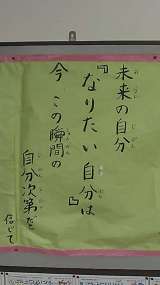 未来の自分
『なりたい自分は』
今この瞬間の
自分次第だ
信じて